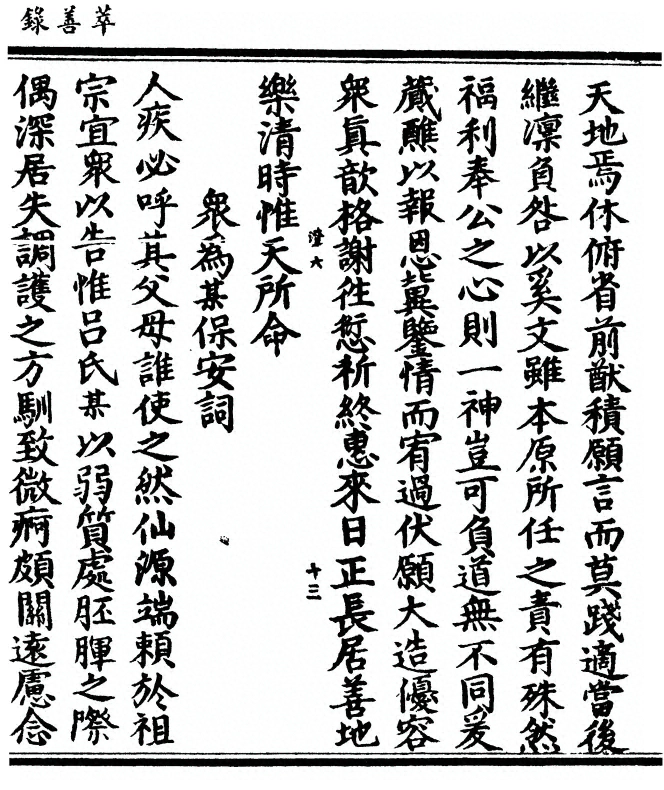 萃善錄
天地焉休俯省前猷積願言而莫踐適當後
繼凛負咎以奚文雖本原所任之責有殊然
福利奉公之心則一神豈可負道無不同爰
蕆醮以報恩冀鑒情而宥過伏願大造優容
衆真歆格謝往愆祈終惠來日正長居善地
澄六
十三
樂清時惟天所命
衆為某保安詞
人疾必呼其父母誰使之然仙源端賴於祖
宗宜衆以告惟吕氏某以弱質處胚腪之際
偶深居失調護之方馴致微痾頗關遠慮念